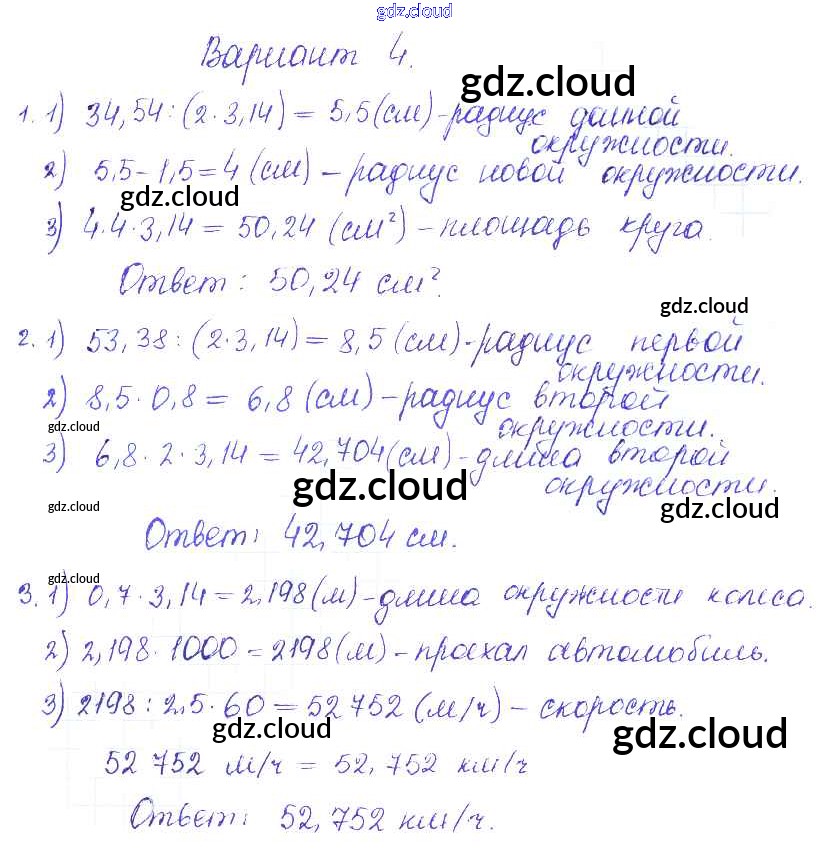 gdz.cloud
Вариант 4.
gdz.cloud
1. 1) 34,54 : (2 · 3,14) = 5,5 (см) - радиус данной
окружности.
2) 5,5 - 1,5 = 4 (см) - радиус новой окружности.
gdz.cloud
3) 4 · 4 · 3,14 = 50,24 (см²) - площадь круга.
Ответ: 50,24 см².
gdz.cloud
2. 1) 53,38 : (2 · 3,14) = 8,5 (см) - радиус первой
окружности.
2) 8,5 · 0,8 = 6,8 (см) - радиус второй
gdz.cloud
окружности.
3) 6,8 · 2 · 3,14 = 42,704 (см) - длина второй
gdz.cloud
окружности.
gdz.cloud
gdz.cloud
Ответ: 42,704 см.
gdz.cloud
3. 1) 0,7 · 3,14 = 2,198 (м) - длина окружности колеса.
2) 2,198 · 1000 = 2198 (м) - проехал автомобиль.
3) 2198 : 2,5 · 60 = 52 752 (м/ч) - скорость.
gdz.cloud
gdz.cloud
52 752 м/ч = 52,752 км/ч
Ответ: 52,752 км/ч.